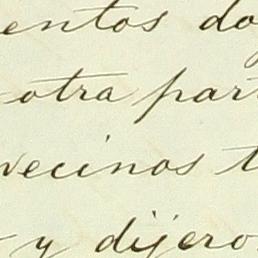 entos do
otra par
vecinos t
y dijero